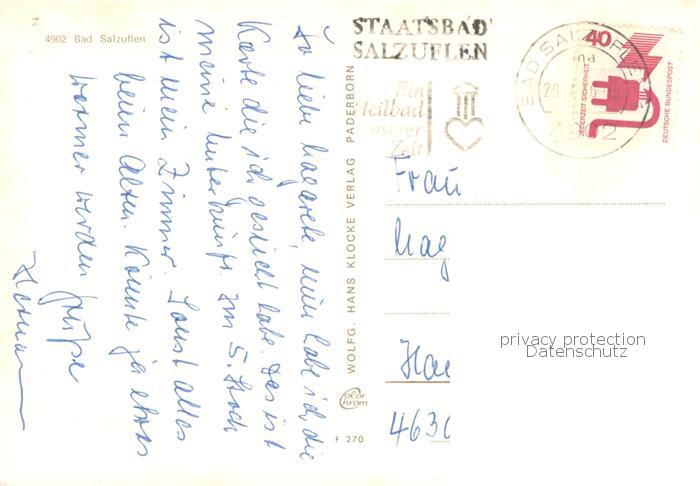 4902 Bad Salzuflen
So liebe Magarete, nun habe ich die
Karte die ich gesucht habe. Das ist
meine Unterkunft. Im 5. Stock
ist mein Zimmer. Sonst alles
beim Alten. Könnte ja etwas
wärmer werden Grüße
Herman
WOLFG. HANS KLOCKE VERLAG PADERBORN
Color chrom
F 270
STAATSBAD
SALZUFLEN
Ein
Heilbad
unserer
Zeit
BAD SALZUFLEN
40
JEDERZEIT SICHERHEIT
DEUTSCHE BUNDESPOST
Frau
Mag
Hae
4630
privacy protection
Datenschutz